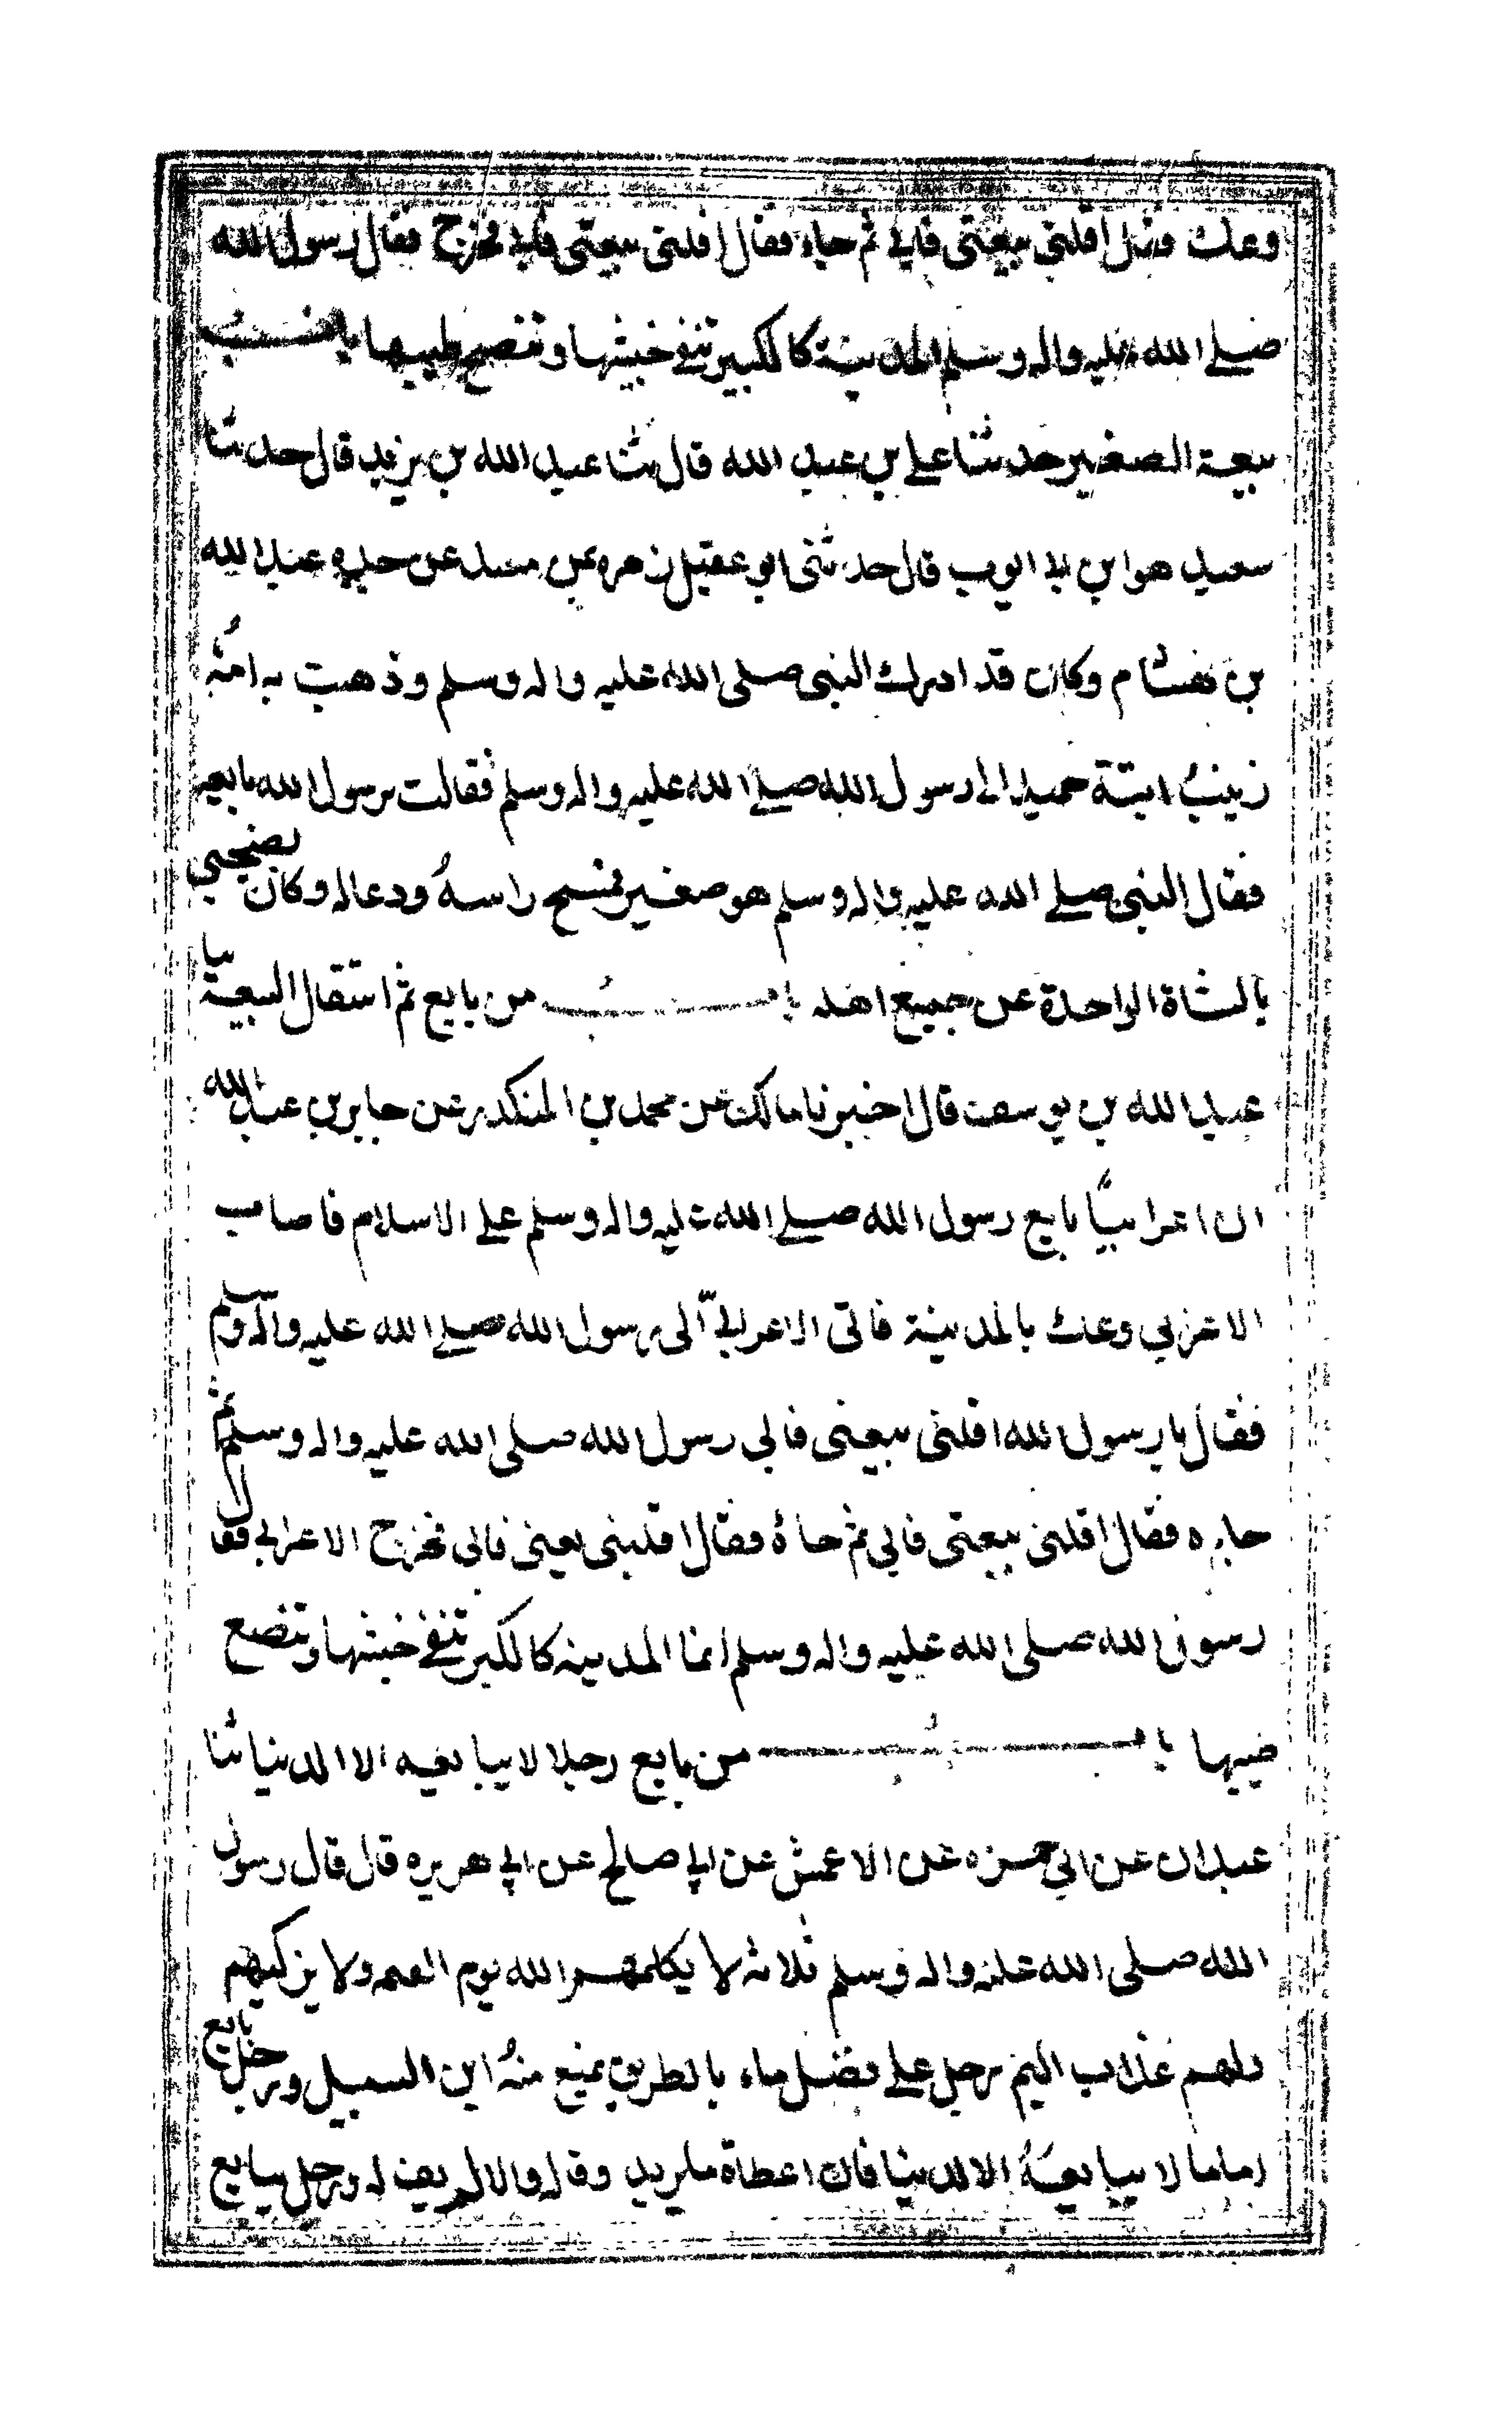 وعك فقال اقلني بيعتي فابى ثم جاءه فقال اقلني بيعتي فابى فخرج فقال رسول الله
صلى الله عليه واله وسلم المدينة كالكير تنفي خبثها وتنصع طيبها باب
بيعة الصغير حدثنا علي بن عبد الله قال ثنا عبد الله بن يزيد قال حدثنا
سعيد هو ابن ابي ايوب قال حدثني ابو عقيل زهرة بن معبد عن جده عبد الله
بن هشام وكان قد ادرك النبي صلى الله عليه واله وسلم وذهبت به امه
زينب ابنة حميد الى رسول الله صلى الله عليه واله وسلم فقالت يرسول الله بايعه
فقال النبي صلى الله عليه واله وسلم هو صغير فمسح راسهُ ودعا له وكان يضحي
بالشاة الواحدة عن جميع اهله باب من بايع ثم استقال البيعة ثنا
عبد الله بن يوسف قال اخبرنا مالك عن محمد بن المنكدر عن جابر بن عبد الله
ان اعرابيًا بايع رسول الله صلى الله عليه واله وسلم على الاسلام فاصاب
الاعرابي وعك بالمدينة فاتى الاعرابي الى رسول الله صلى الله عليه واله وسلم
فقال يا رسول الله اقلني بيعتي فابى رسول الله صلى الله عليه واله وسلم ثم
جاءه فقال اقلني بيعتي فابى ثم جاءه فقال اقلني بيعتي فابى فخرج الاعرابي فقال
رسول الله صلى الله عليه واله وسلم انما المدينة كالكير تنفي خبثها وتنصع
طيبها باب من بايع رجلا لا يبايعه الا للدنيا ثنا
عبدان عن ابي حمزه عن الاعمش عن ابي صالح عن ابي هريره قال قال رسول
الله صلى الله عليه واله وسلم ثلاثه لا يكلمهم الله يوم القيمه ولا يزكيهم
ولهم عذاب اليم رجل على فضل ماء بالطريق يمنع منهُ ابن السبيل ورجل بايع
اماما لا يبايعهُ الا للدنيا فان اعطاه ما يريد وفا له والا لم يف له ورجل يبايع